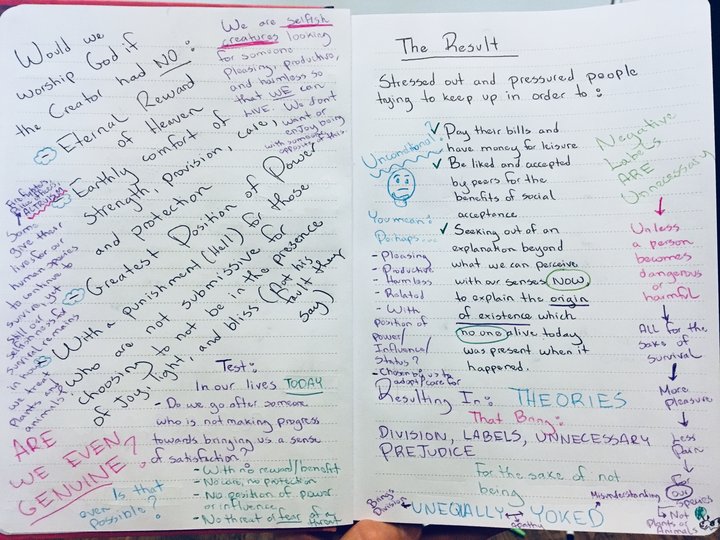 Would we
worship God if
the Creator had NO:
- Eternal Reward
of Heaven
- Earthly comfort of
strength, provision, care,
and protection
- Greatest Position of Power
- With a punishment (Hell) for those
who are not submissive for
choosing to not be in the presence
of joy, light, and bliss (Not his
fault they
say)
We are selfish
creatures looking
for someone
Pleasing, productive,
and harmless so
that WE can
LIVE. We don't
want or
enjoy being
with someone
opposite of this
Fire fighters,
ALTRUISM
Some
give their
lives for our
human species
to continue to
survive yet
still our
selfishness for
survival remains
in how
we treat
Plants and
animals?
ARE
WE EVEN
GENUINE?
Is that
even
possible?
Test:
In our lives TODAY
- Do we go after someone
who is not making progress
towards bringing us a sense
of satisfaction?
- With no reward/benefit
- No care, no protection
- No position of power
or influence
- No threat of fear of a
threat
The Result
Stressed out and pressured people
trying to keep up in order to:
✓ Pay their bills and
have money for leisure
✓ Be liked and accepted
by peers for the
benefits of social
acceptance.
✓ Seeking out of an
explanation beyond
what we can perceive
with our senses NOW
to explain the origin
of existence which
no one alive today
was present when it
happened.
Unconditional?
You mean:
Perhaps...
- Pleasing
- Productive
- Harmless
- Related
- With
position of
power/
Influence/
Status?
- Choosing us to
adopt/care for
Negative
Labels
ARE
Unnecessary
Unless
a person
becomes
dangerous
or
harmful
All for the
sake of
survival
More
pleasure
Less
Pain
For
our
species
Not
Plants or
Animals
Resulting In: THEORIES
That Bring:
DIVISION, LABELS, UNNECESSARY
PREJUDICE
For the sake of not
being
Brings
Division
UNEQUALLY YOKED
apathy
Misunderstanding